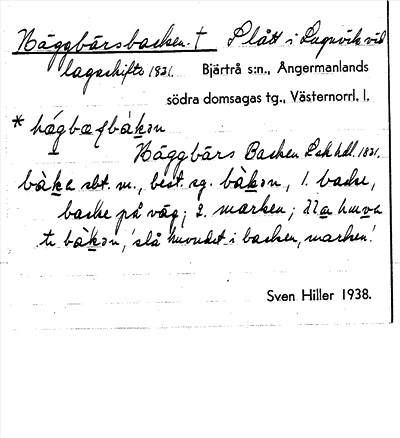 Häggbärsbacken. † Slått i Lugnvik vid
lagaskifte 1821. Bjärtrå s:n., Ångermanlands
södra domsagas tg., Västernorrl. l.
* hægbæʃbàkən
Häggbärs Backen Lsk hdl. 1821.
bàka sbt. m., best. sg. bàkən, 1. backe,
backe på väg; 2. marken; sla huva
ti bàkən, 'slå huvudet i backen, marken'.
Sven Hiller 1938.